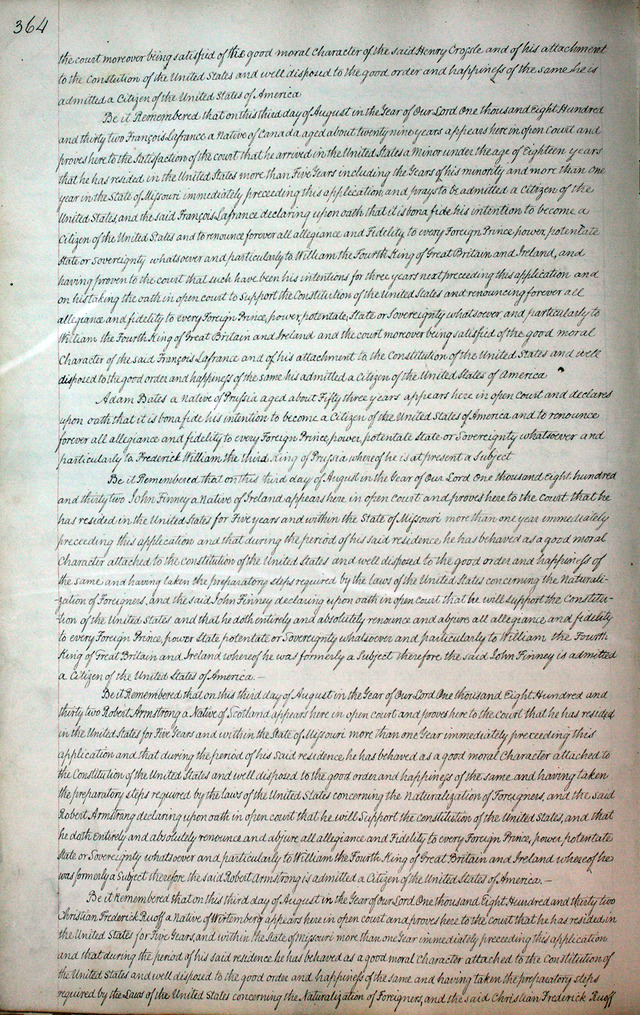 364
the court moreover being satisfied of the good moral Character of the said Henry Cropsle and of his attachment
to the Constution of the United States and well disposed to the good order and happiness of the same he is
admitted a Citizen of the United States of America
Be it Remembered that on this third day of August in the Year of Our Lord One thousand Eight Hundred
and thirty two François Lafrance a Native of Canada aged about twenty nine years appears here in open Court and
proves here to the Satisfaction of the court that he arrived in the United States a Minor under the age of Eighteen years
that he has resided in the United States more than Five Years including the Years of his minority and more than one
year in the State of Missouri immediately preceeding this application, and prays to be admitted a Citizen of the
United States, and the said François Lafrance declaring upon oath that it is bona fide his intention to become a
Citizen of the United States and to renounce forever all allegiance and Fidelity to every Foreign Prince, power, potentate
State or Sovereignty whatsoever and particularly to William the Fourth King of Great Britain and Ireland, and
having proven to the court that such have been his intentions for three years next preceeding this application and
on his taking the oath in open court to Support the Constitution of the United States and renouncing forever all
allegiance and fidelity to every Foreign Prince, power, potentate, State or Sovereignty whatsoever and particularly to
William the Fourth King of Great Britain and Ireland and the court moreover being satisfied of the good moral
Character of the said François Lafrance and of his attachment to the Constitution of the United States and well
disposed to the good order and happiness of the same his admitted a Citizen of the United States of America
Adam Bates a native of Prussia aged about Fifty three years appears here in open Court and declares
upon oath that it is bona fide his intention to become a Citizen of the United States of America and to renounce
forever all allegiance and fidelity to every Foreign Prince, power, potentate State or Sovereignty whatsoever and
particularly to Frederick William the third King of Prussia whereof he is at present a Subject
Be it Remembered that on this third day of August in the Year of Our Lord One thousand Eight hundred
and thirty two John Finney a Native of Ireland appears here in open Court and proves here to the Court that he
has resided in the United States for Five years and within the State of Missouri more than one year immediately
preceeding this application and that during the period of his said residence he has behaved as a good moral
Character attached to the constitution of the United States and well disposed to the good order and happiness of
the same and having taken the preparatory steps required by the laws of the United States concerning the Naturali-
zation of Foreigners, and the said John Finney declaring upon oath in open court that he will support the Constitu-
tion of the United States and that he doth entirely and absolutely renounce and abjure all allegiance and fidelity
to every Foreign Prince, power State potentate or Sovereignty whatsoever and particularly to William the Fourth
King of Great Britain and Ireland whereof he was formerly a Subject therefore the said John Finney is admitted
a Citizen of the United States of America.—
Be it Remembered that on this third day of August in the Year of Our Lord One thousand Eight Hundred and
thirty two Robert Armstrong a Native of Scotland appears here in open court and proves here to the Court that he has resided
in the United States for Five Years and within the State of Missouri more than one Year immediately preceeding this
application and that during the period of his said residence he has behaved as a good moral Character attached to
the Constitution of the United States and well disposed to the good order and happiness of the same and having taken
the preparatory steps required by the laws of the United States concerning the Naturalization of Foreigners, and the said
Robert Armstrong declaring upon oath in open court that he will Support the constitution of the United States, and that
he doth Entirely and absolutely renounce and abjure all allegiance and Fidelity to every Foreign Prince, power, potentate
State or Sovereignty whatsoever and particularly to William the Fourth King of Great Britain and Ireland whereof he
was formerly a Subject therefore the said Robert Armstrong is admitted a Citizen of the United States of America.—
Be it Remembered that on this third day of August in the Year of our Lord One thousand Eight Hundred and thirty two
Christian Frederick Ruoff a Native of Wirtemberg appears here in open court and proves here to the Court that he has resided, in
the United States for Five Years, and within the State of Missouri more than one Year immediately preceeding this application
and that during the period of his said residence he has behaved as a good moral Character attached to the Constitution of
the United States and well disposed to the good order and happiness of the same and having taken the preparatory steps
required by the Laws of the United States concerning the Naturalization of Foreigners, and the said Christian Frederick Ruoff